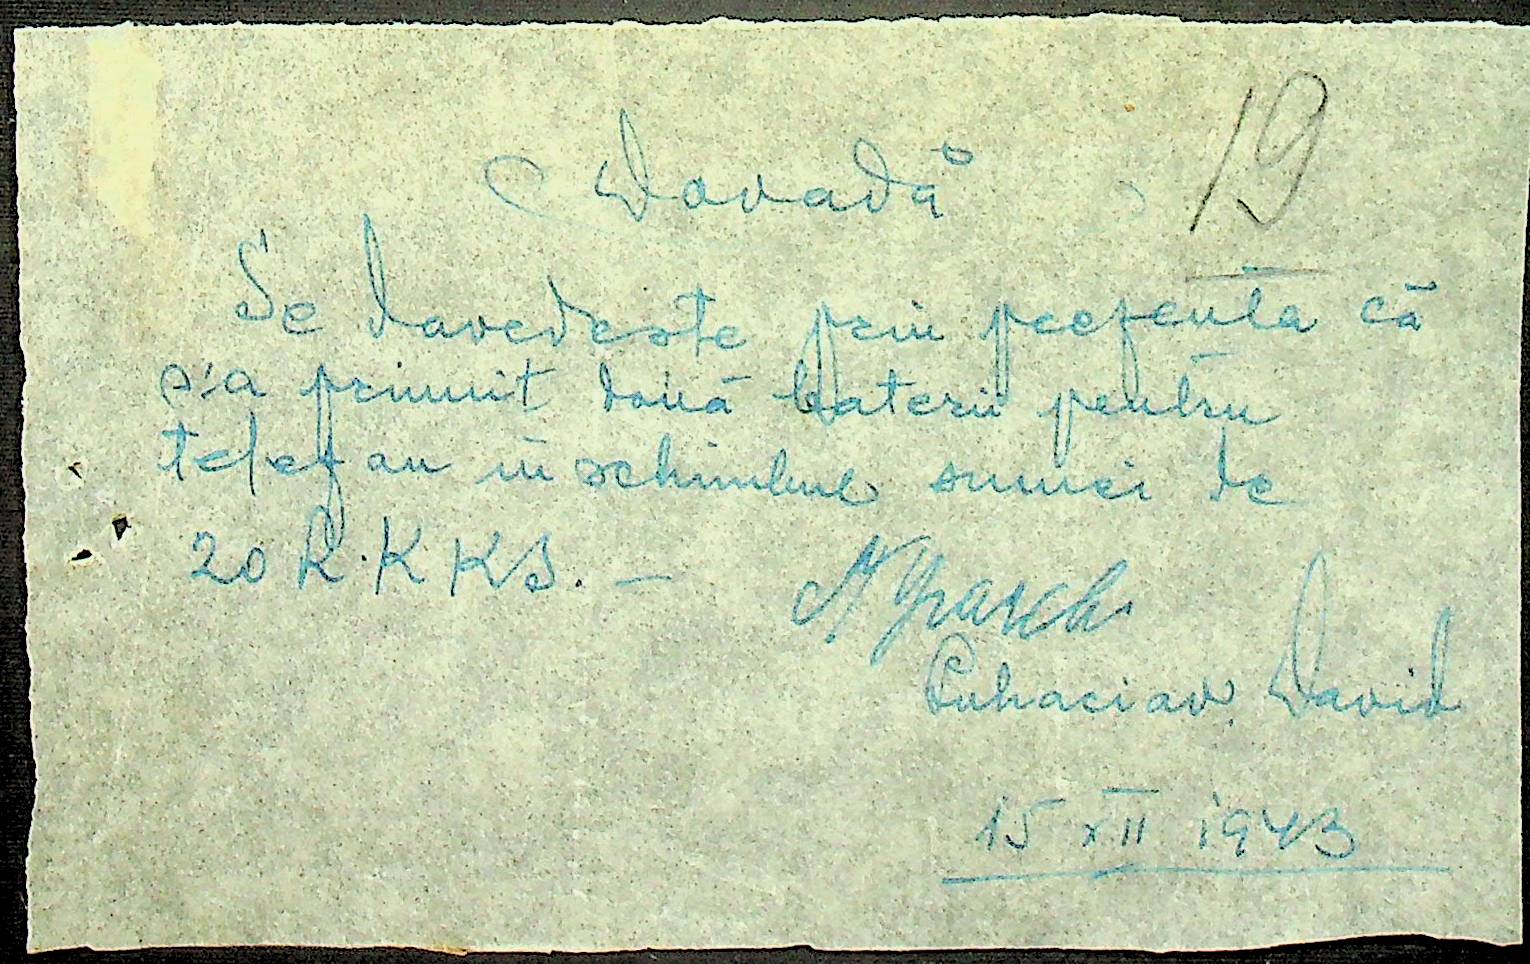 19
Dovadă
Se dovedeste prin prezenta că
s'a primit două baterii pentru
telefon in schimbul sumei de
20 R.KKS. —
David
15 XII 1943